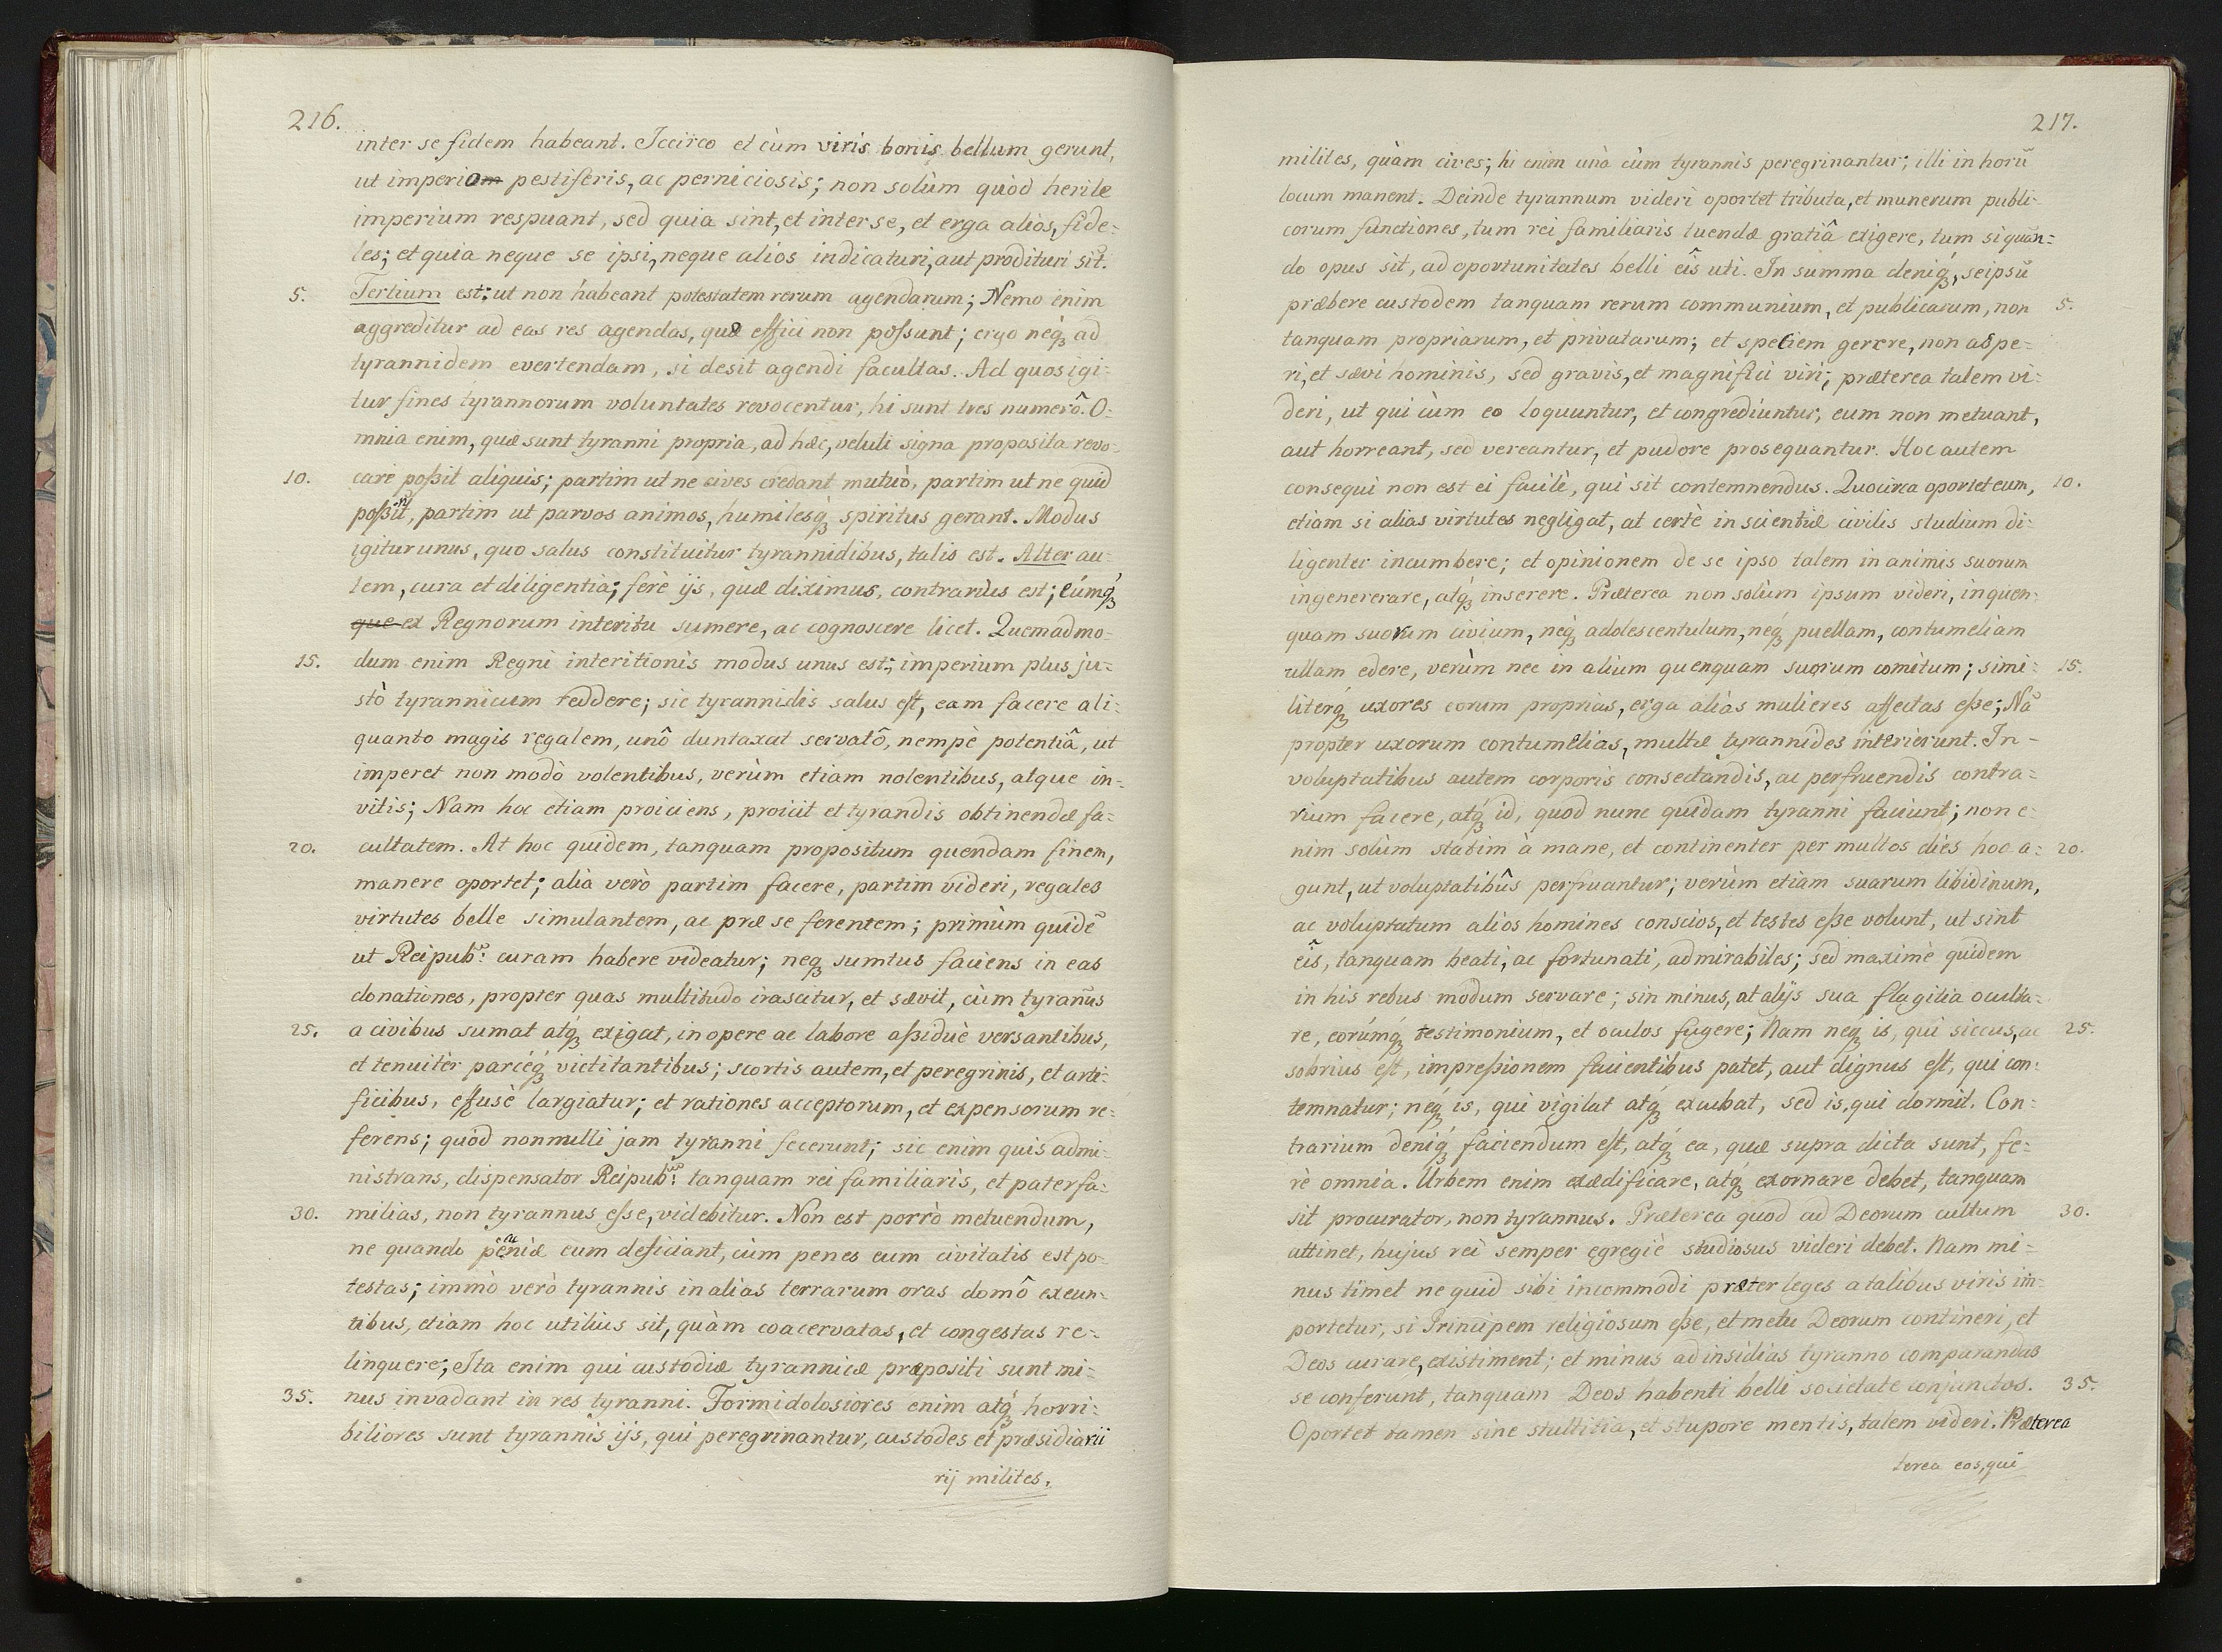 216.
inter se fidem habeant. Iccirco et cùm viris bonis bellum gerunt,
ut imperio pestiferis, ac perniciosis; non solùm quòd herile
imperium respuant, sed quia sint, et inter se, et erga alios, fide=
les; et quia neque se ipsi, neque alios indicaturi, aut prodituri sīt.
5. Tertium est; ut non habeant potestatem rerum agendarum; Nemo enim
aggreditur ad eas res agendas, quæ effici non possunt; ergo neq́ꝫ ad
tyrannidem evertendam, si desit agendi facultas. Ad quos igi=
tur fines tyrannorum voluntates revocentur, hi sunt tres numerô. O=
mnia enim, quæ sunt tyranni propria, ad hæc, veluti signa proposita revo=
10. care poßit aliquis; partim ut ne cives credant mutuò, partim ut ne quid
poßint, partim ut parvos animos, humilesq́ꝫ spiritus gerant. Modus
igitur unus, quo salus constituitur tyrannidibus, talis est. Alter au=
tem, cura et diligentia; ferè ijs, quæ diximus, contrarius est; eúmq́ꝫ
que ex Regnorum interitu sumere, ac cognoscere licet. Quemadmo=
15. dum enim Regni interitionis modus unus est; imperium plus ju=
stò tyrannicum reddere; sic tyrannidis salus est, eam facere ali=
quanto magis regalem, unô duntaxat servatô, nempè potentiâ, ut
imperet non modò volentibus, verùm etiam nolentibus, atque in=
vitis; Nam hoc etiam proiciens, proicit et tyrandis obtinendæ fa=
20. cultatem. At hoc quidem, tanquam propositum quendam finem,
manere oportet; alia verò partim facere, partim videri, regales
virtutes belle simulantem, ac præ se ferentem; primùm quidē
ut Reipubᵃᵉ: curam habere videatur; neqꝫ sumtus faciens in eas
donationes, propter quas multitudo irascitur, et sævit, cùm tyrañus
25. a civibus sumat atq́ꝫ exigat, in opere ac labore aßiduè versantibus,
et tenuitèr parcéq́ꝫ victitantibus; scortis autem, et peregrinis, et arti=
ficibus, effusè largiatur; et rationes acceptorum, et expensorum re=
ferens; quòd nonnulli jam tyranni fecerunt; sic enim quis admi=
nistrans, dispensator Reipubᵃᵉ: tanquam rei familiaris, et paterfa=
30. milias, non tyrannus esse, videbitur. Non est porrò metuendum,
ne quando pecuniæ eum deficiant, cùm penes eum civitatis est po=
testas; immò verò tyrannis in alias terrarum oras domô exeun=
tibus, etiam hoc utilius sit, quàm coacervatas, et congestas re=
linquere; Ita enim qui custodiæ tyrannicæ præpositi sunt mi=
35. nus invadant in res tyranni. Formidolosiores enim atq́ꝫ horri=
biliores sunt tyrannis ijs, qui peregrinantur, custodes et præsidiarii
rij milites.
217.
milites, quàm cives; hi enim unà cùm tyrannis peregrinantur; illi in horū
locum manent. Deinde tyrannum videri oportet tributa, et munerum publi=
corum functiones, tum rei familiaris tuendæ gratiâ exigere, tum si quan=
do opus sit, ad oportunitates belli eîs uti. In summa deniq́ꝫ, seipsū
præbere custodem tanquam rerum communium, et publicarum, non 5.
tanquam propriarum, et privatarum; et speciem gerere, non aspe=
ri, et sævi hominis, sed gravis, et magnifici viri; præterea talem vi=
deri, ut qui cùm eo loquuntur, et congrediuntur, eum non metuant,
aut horreant, sed vereantur, et pudore prosequantur. Hoc autem
consequi non est ei facilè, qui sit contemnendus. Quocirca oportet eum, 10.
etiam si alias virtutes negligat, at certè in scientiæ civilis studium di=
ligenter incumbere; et opinionem de se ipso talem in animis suorum
ingenererare, atq́ꝫ inserere. Præterea non solùm ipsum videri, in quen=
quam suorum civium, neq́ꝫ adolescentulum, néq́ꝫ puellam, contumeliam
ullam edere, verùm nec in alium quenquam suorum comitum; simi= 15.
litérq́ꝫ uxores eorum proprias, erga alias mulieres affectas eße; Nā
propter uxorum contumelias, multæ tyrannides interierunt. In=
voluptatibus autem corporis consectandis, ac perfruendis contra=
rium facere, atq́ꝫ id, quod nunc quidam tyranni faciunt; non e=
nim solùm statim à mane, et continenter per multos dies hoc a= 20.
gunt, ut voluptatibûs perfruantur; verùm etiam suarum libidinum,
ac voluptatum alios homines conscios, et testes eße volunt, ut sint
eîs, tanquam beati, ac fortunati, admirabiles; sed maximè quidem
in his rebus modum servare; sin minus, at alijs sua flagitia oculta=
re, eorúmq́ꝫ testimonium, et oculos fugere; Nam neq́ꝫ is, qui siccus, ac 25.
sobrius est, impreßionem facientibus patet, aut dignus est, qui con=
temnatur; néq́ꝫ is, qui vigilat atq́ꝫ excubat, sed is, qui dormit. Con=
trarium deniq́ꝫ faciendum est, atq́ꝫ ea, quæ supra dicta sunt, fe=
rè omnia. Urbem enim exædificare, atq́ꝫ exornare debet, tanquam
sit procurator, non tyrannus. Præterea quod ad Deorum cultum 30.
attinet, hujus rei semper egregiè studiosus videri debet. Nam mi=
nus timet ne quid sibi incommodi præter leges a talibus viris im=
portetur, si Principem religiosum eße, et metu Deorum contineri, et
Deos curare, existiment; et minus ad insidias tyranno comparandas
se conferunt, tanquam Deos habenti belli societate conjunctos. 35.
Oportet tamen sine stultitia, et stupore mentis, talem videri. Præterea
terea eos, qui